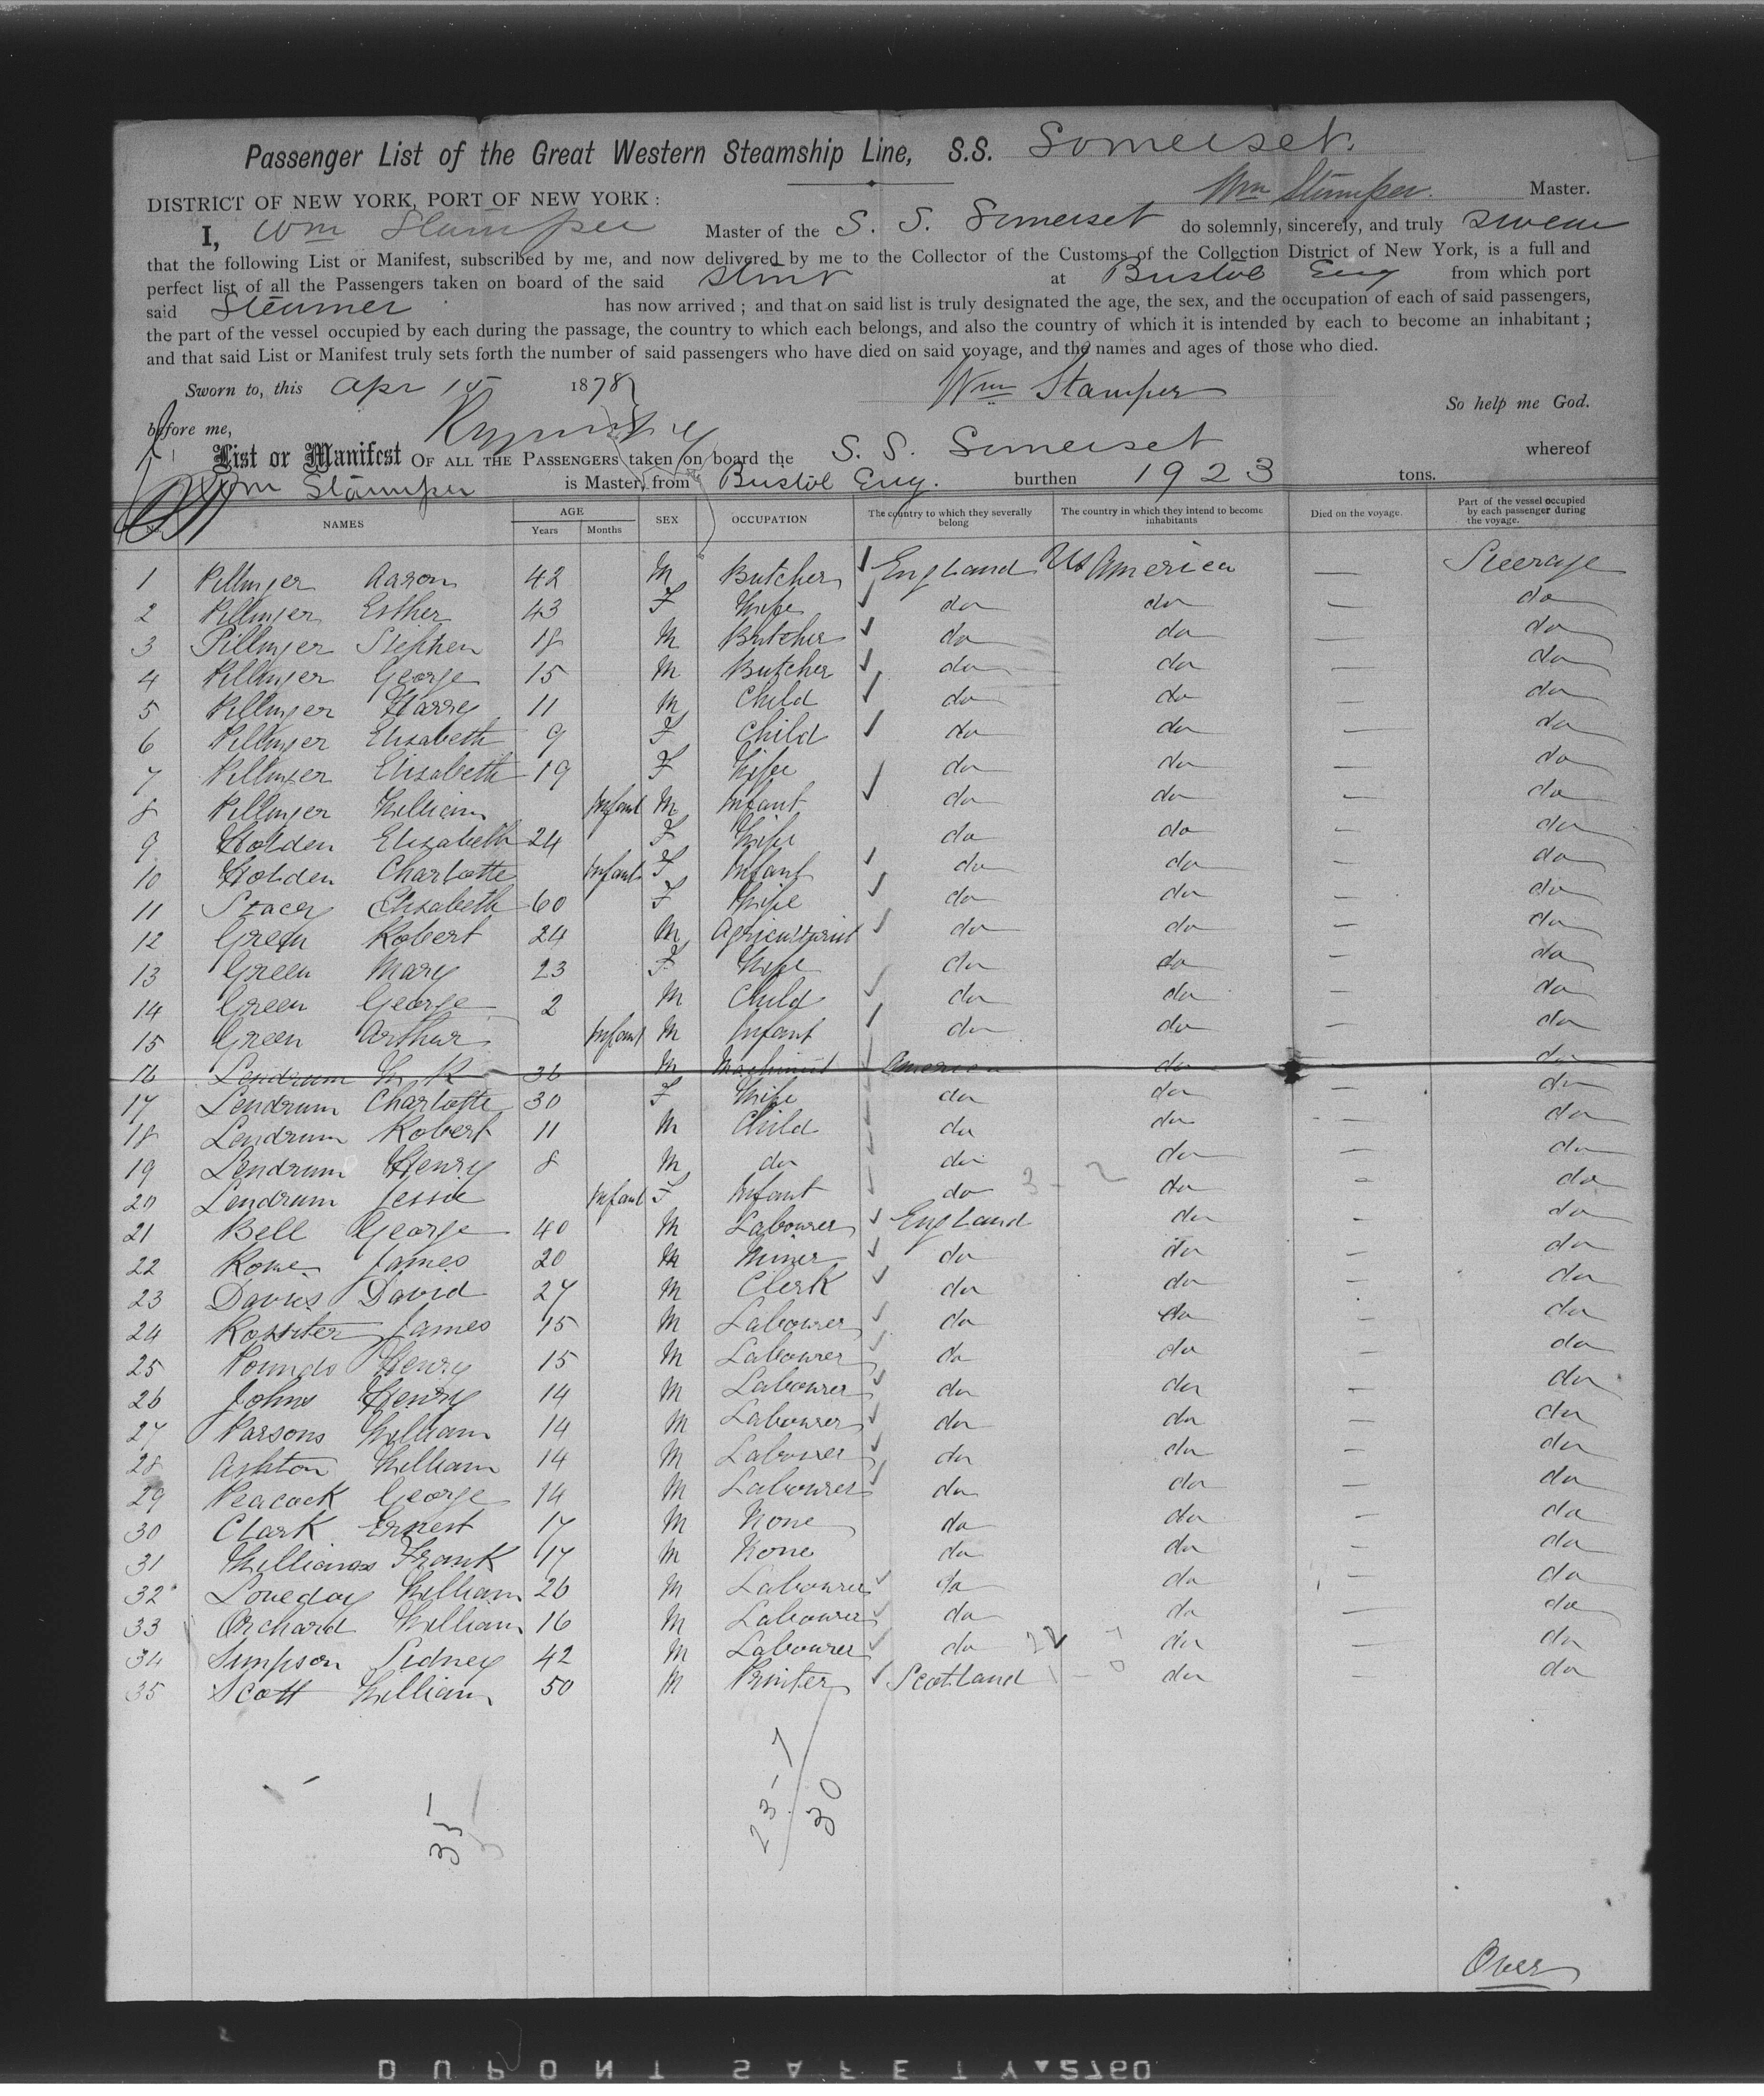 Passenger List of the Great Western Steamship Line, S.S. Somerset.
Wm Stamper. Master.
DISTRICT OF NEW YORK, PORT OF NEW YORK :
I, Wm Stamper Master of the S. S. Somerset do solemnly, sincerely, and truly swear
that the following List or Manifest, subscribed by me, and now delivered by me to the Collector of the Customs of the Collection District of New York, is a full and
perfect list of all the Passengers taken on board of the said Stmr at Bristol Eng from which port
said Steamer has now arrived ; and that on said list is truly designated the age, the sex, and the occupation of each of said passengers,
the part of the vessel occupied by each during the passage, the country to which each belongs, and also the country of which it is intended by each to become an inhabitant ;
and that said List or Manifest truly sets forth the number of said passengers who have died on said voyage, and the names and ages of those who died.
Sworn to, this Apr 15 1878 Wm Stamper So help me God.
before me,
List or Manifest OF ALL THE PASSENGERS taken on board the S. S. Somerset whereof
Wm Stamper is Master, from Bristol Eng. burthen 1923 tons.
No. NAMES AGE Years Months SEX OCCUPATION The country to which they severally belong The country in which they intend to become inhabitants Died on the voyage. Part of the vessel occupied by each passenger during the voyage.
1 Pillinger Aaron 42 M Butcher England US America — Steerage
2 Pillinger Esther 43 F Wife do do — do
3 Pillinger Stephen 18 M Butcher do do — do
4 Pillinger George 15 M Butcher do do — do
5 Pillinger Harry 11 M Child do do — do
6 Pillinger Elisabeth 9 F Child do do — do
7 Pillinger Elisabeth 19 F Wife do do — do
8 Pillinger William Infant M Infant do do — do
9 Holden Elisabeth 24 F Wife do do — do
10 Holden Charlotte Infant F Infant do do — do
11 Stacey Elisabeth 60 F Wife do do — do
12 Green Robert 24 M Agriculturist do do — do
13 Green Mary 23 F Wife do do — do
14 Green George 2 M Child do do — do
15 Green Arthur Infant M Infant do do — do
16 Lendrum W R 36 M Machinist America do do
17 Lendrum Charlotte 30 F Wife do do — do
18 Lendrum Robert 11 M Child do do — do
19 Lendrum Henry 8 M do do do — do
20 Lendrum Jessie Infant F Infant do 3 - 2 do — do
21 Bell George 40 M Labourer England do — do
22 Rowe James 20 M Miner do do — do
23 Davies David 27 M Clerk do do — do
24 Rossiter James 15 M Labourer do do — do
25 Pounds Henry 15 M Labourer do do — do
26 Johns Henry 14 M Labourer do do — do
27 Parsons William 14 M Labourer do do — do
28 Ashton William 14 M Labourer do do — do
29 Peacock George 14 M Labourer do do — do
30 Clark Ernest 17 M None do do — do
31 Williams Frank 17 M None do do — do
32 Loveday William 26 M Labourer do do — do
33 Orchard William 16 M Labourer do do — do
34 Simpson Sidney 42 M Labourer do do — do
35 Scott William 50 M Printer Scotland 1 - 0 do — do
35
23 - 7
30
Over
DUPONT SAFETY 2760